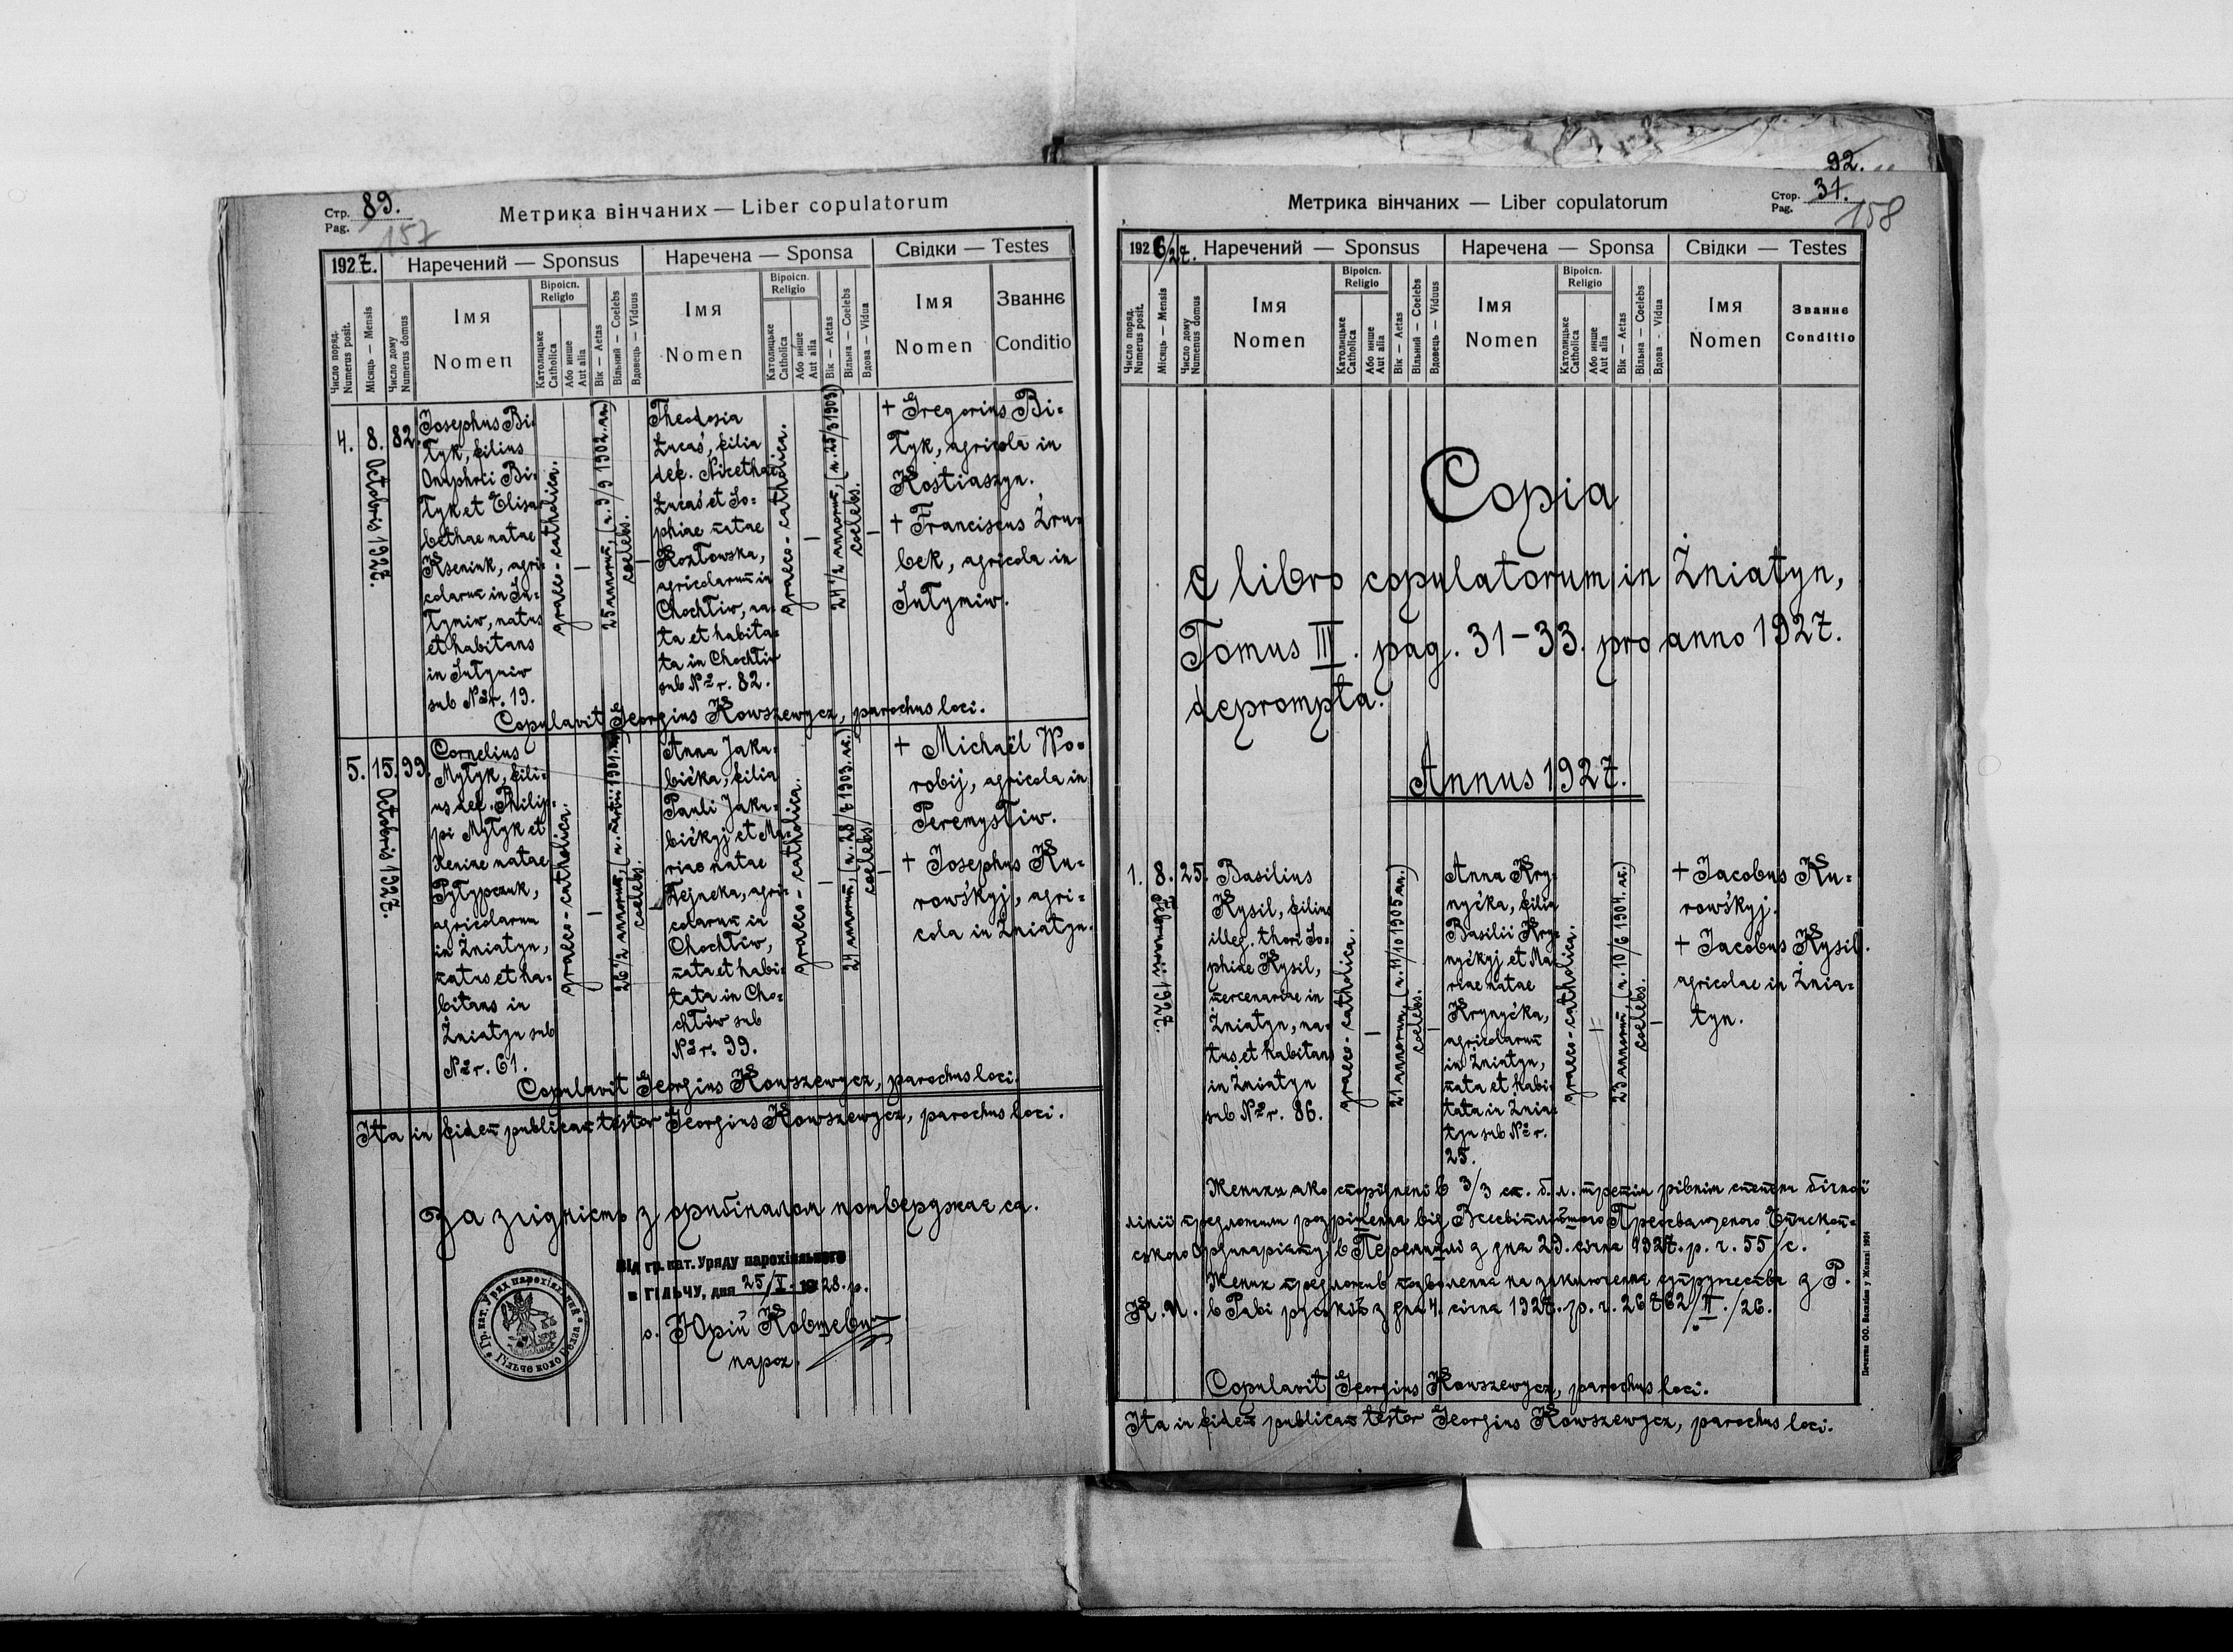 Стр. Pag. 89.
157
Метрика вінчаних — Liber copulatorum
1927.
Наречений — Sponsus
Наречена — Sponsa
Свідки — Testes
Число поряд. Numerus posit.
Місяць — Mensis
Число дому Numerus domus
Імя
Nomen
Віроісп. Religio
Католицьке Catholica
Або инше Aut alia
Вік — Aetas
Вільний — Coelebs
Вдовець — Viduus
Імя
Nomen
Віроісп. Religio
Католицьке Catholica
Або инше Aut alia
Вік — Aetas
Вільна — Coelebs
Вдова — Vidua
Імя
Nomen
Званнє
Conditio
4.
8. Octobris 1927.
82.
Josephus Bi-
łyk, filius
Onuphrii Bi-
łyk et Elisa-
bethae natae
Kseniuk, agri-
colarum in Su-
tyniw, natus
et habitans
in Sutyniw
sub Nr. 19.
graeco-catholica.
—
25 annorum, (n. 9/9 1902. an.)
coelebs.
—
Theodosia
Łucaś, filia
def. Nicethae
Łucaś et So-
phiae natae
Kozłowska,
agricolarum in
Chochłiw, na-
ta et habita-
ta in Chochłiw
sub Nr. 82.
graeco-catholica.
—
24 1/2 annorum, (n. 25/3 1903)
coelebs.
—
+ Gregorius Bi-
łyk, agricola in
Kostiaszyn.
+ Franciscus Zru-
bek, agricola in
Sutyniw.
Copulavit Georgius Kowszewycz, parochus loci.
5.
15. Octobris 1927.
99.
Cornelius
Mytyk, fili-
us def. Philip-
pi Mytyk et
Xeniae natae
Pyłypczuk,
agricolarum
in Żniatyn,
natus et ha-
bitans in
Żniatyn sub
Nr. 61.
graeco-catholica.
—
26 1/2 annorum,
coelebs.
—
Anna Jaku-
bićka, filia
Pauli Jaku-
bićkyj et Ma-
riae natae
Hejneka, agri-
colarum in
Chochłiw,
nata et habi-
tata in Cho-
chłiw sub
Nr. 99.
graeco-catholica.
—
24 annorum, (n. 28/7 1903. an.)
coelebs.
—
+ Michaël Wo-
robij, agricola in
Peremysłiw.
+ Josephus Ku-
rowśkyj, agri-
cola in Żniatyn.
Copulavit Georgius Kowszewycz, parochus loci.
Ita in fidem publicam testor Georgius Kowszewycz, parochus loci.
За згідність з оригіналом потверджає ся.
Від гр. кат. Уряду парохіяльного
в ГІЛЬЧУ, дня 25/I. 1928. р.
о. Юрій Ковшевич
парох.
92.
Стор. Pag. 31.
158
Метрика вінчаних — Liber copulatorum
1926/27.
Наречений — Sponsus
Наречена — Sponsa
Свідки — Testes
Число поряд. Numerus posit.
Місяць — Mensis
Число дому Numerus domus
Імя
Nomen
Віроісп. Religio
Католицьке Catholica
Або инше Aut alia
Вік — Aetas
Вільний — Coelebs
Вдовець — Viduus
Імя
Nomen
Віроісп. Religio
Католицьке Catholica
Або инше Aut alia
Вік — Aetas
Вільна — Coelebs
Вдова - Vidua
Імя
Nomen
Званнє
Conditio
Copia
e libro copulatorum in Żniatyn,
Tomus III. pag. 31-33. pro anno 1927.
deprompta.
Annus 1927.
1.
8. Februarii 1927.
25.
Basilius
Kysil, filius
illeg. thori So-
phiae Kysil,
mercenariae in
Żniatyn, na-
tus et habitans
in Żniatyn
sub Nr. 86.
graeco-catholica.
—
21 annorum, (n. 11/10 1905. an.)
coelebs.
—
Anna Kry-
nyćka, filia
Basilii Kry-
nyćkyj et Ma-
riae natae
Krynyćka,
agricolarum
in Żniatyn,
nata et habi-
tata in Żnia-
tyn sub Nr.
25.
graeco-catholica.
—
23 annorum, (n. 10/6 1904. an.)
coelebs.
—
+ Jacobus Ku-
rowśkyj.
+ Jacobus Kysil.
agricolae in Żnia-
tyn.
Женихи яко споріднені в 3/3 ст. б. л. третім рівнім степени бічної
лінії предложили розрішення від Всесвітлійшого Преосвященого Епископ-
ського Ординаріяту в Перемишлі з дня 29. січня 1927. р. ч. 55/с.
Жених предложив позволення на заключення супружества з Р.
К. У. в Раві руській з дня 4. січня 1927. р. ч. 26762/II./26.
Copulavit Georgius Kowszewycz, parochus loci.
Ita in fidem publicam testor Georgius Kowszewycz, parochus loci.
Печатня ОО. Василіян у Жовкві 1924